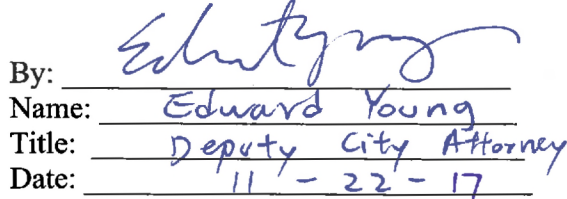 By:
Name: Edward Young
Title: Deputy City Attorney
Date: 11 - 22 - 17